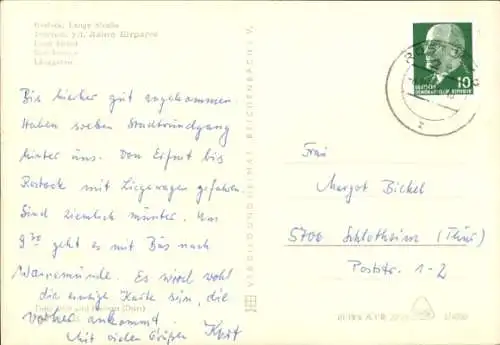 Rostock, Lange Straße
Bis hierher gut angekommen.
Haben soeben Stadtrundgang
hinter uns. Von Erfurt bis
Rostock mit Liegewagen gefahren.
Sind ziemlich munter. Um
9³⁰ geht es mit Bus nach
Warnemünde. Es wird wohl
die einzige Karte sein, die
vorher ankommt.
Mit vielen Grüßen Kurt
VERB BILD UND HEIMAT REICHENBACH I. V.
10
DEUTSCHE
DEMOKRATISCHE REPUBLIK
Frau
Margot Bickel
5706 Schlotheim (Thür)
Poststr. 1-2